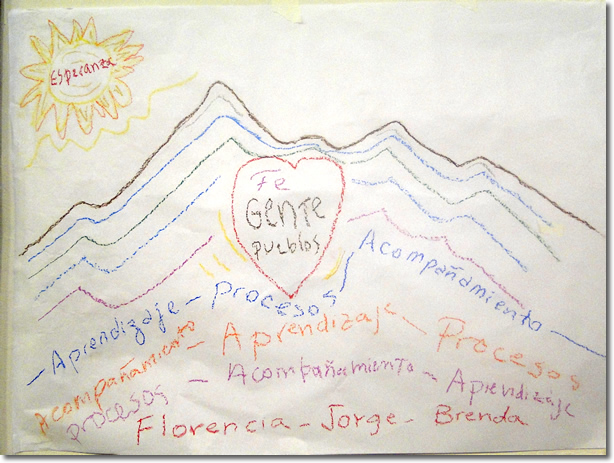 Esperanza
Fe
Gente
pueblos
Aprendizaje - procesos
Acompañamiento
Acompañamiento - Aprendizaje - Procesos
procesos - Acompañamiento - Aprendizaje
Florencia - Jorge - Brenda